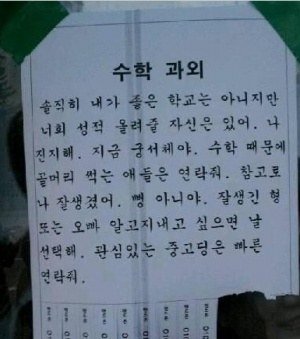 수학 과외
솔직히 내가 좋은 학교는 아니지만
너희 성적 올려줄 자신은 있어. 나
진지해. 지금 궁서체야. 수학 때문에
골머리 썩는 애들은 연락줘. 참고로
나 잘생겼어. 뻥 아니야. 잘생긴 형
또는 오빠 알고지내고 싶으면 날
선택해. 관심있는 중고딩은 빠른
연락줘.